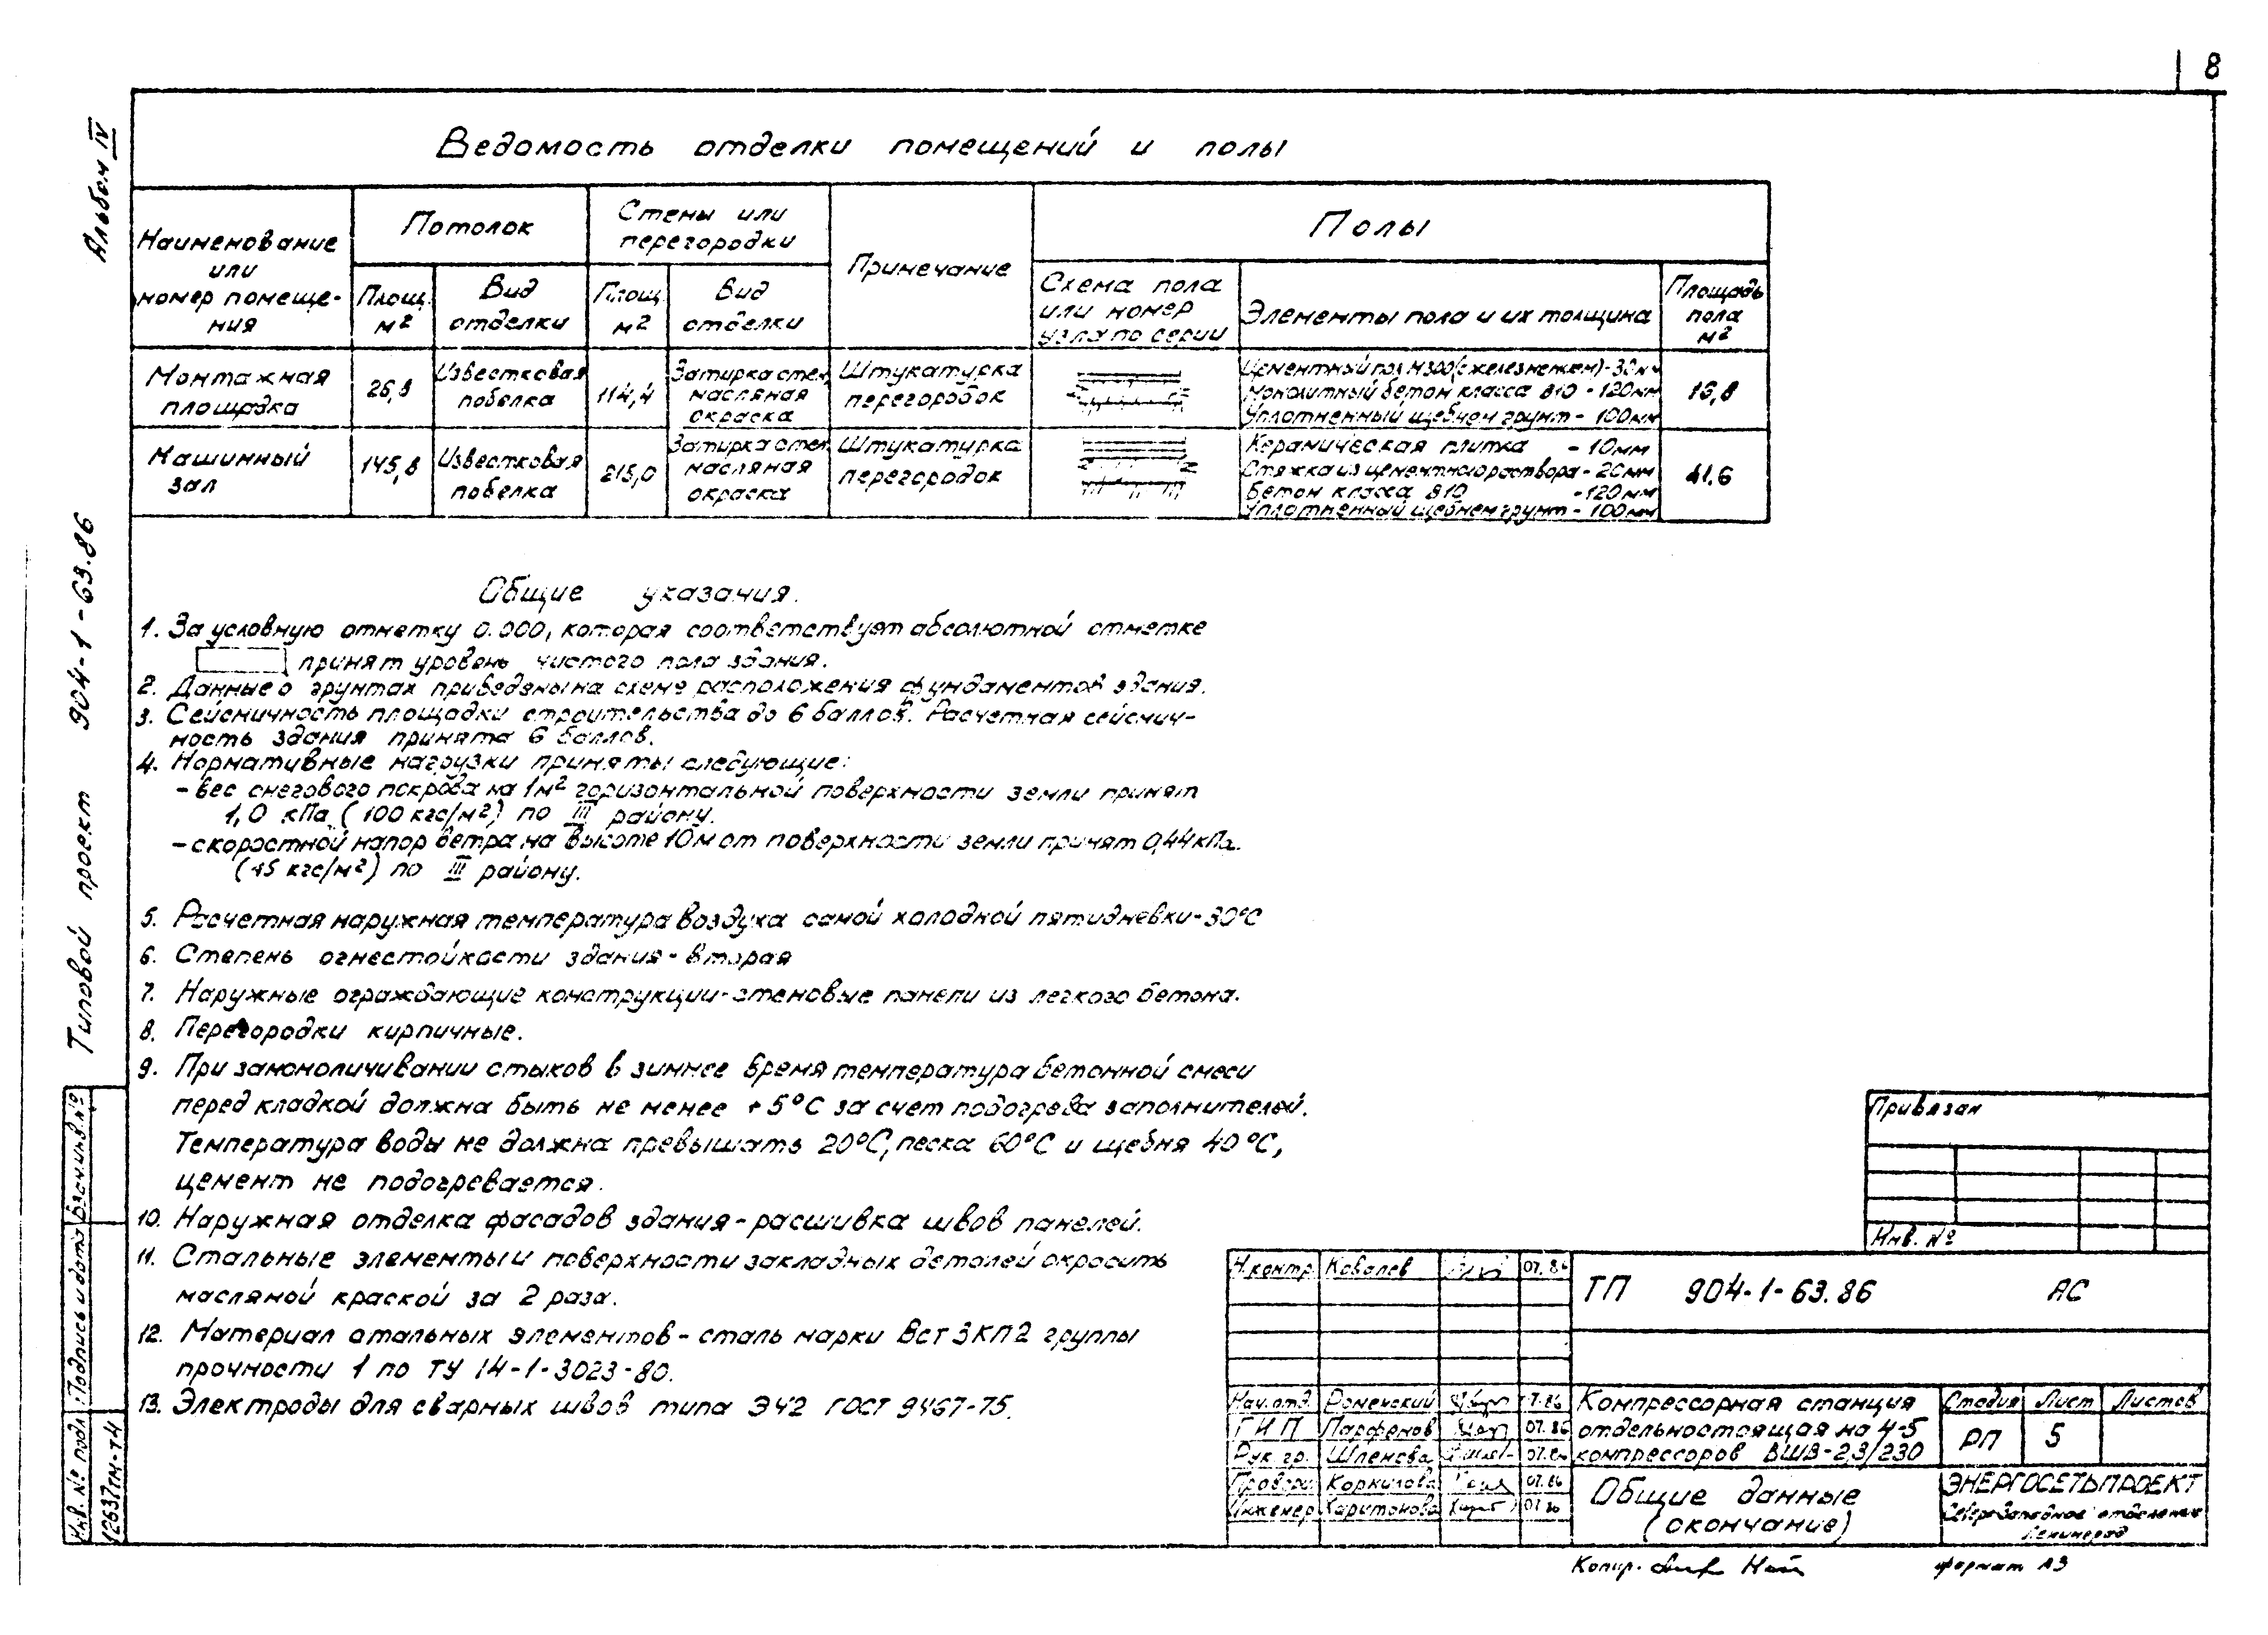 8
Альбом IV
Типовой проект 904-1-63.86
Ведомость отделки помещений и полы
Наименование или номер помещения
Потолок
Стены или перегородки
Примечание
Полы
Площ. м²
Вид отделки
Площ м²
Вид отделки
Схема пола или номер узла по серии
Элементы пола и их толщина
Площадь пола м²
Монтажная площадка
Известковая побелка
114,4
Затирка стен, масляная окраска
Штукатурка перегородок
Цементный пол М300 (с железнением) - 30мм
Монолитный бетон класса В10 - 120мм
Уплотненный щебнем грунт - 100мм
16,8
Машинный зал
145,8
Известковая побелка
215,0
Затирка стен, масляная окраска
Штукатурка перегородок
Керамическая плитка - 10мм
Стяжка из цементного раствора - 20мм
Бетон класса В10 - 120мм
Уплотненный щебнем грунт - 100мм
Общие указания.
1. За условную отметку 0.000, которая соответствует абсолютной отметке
принят уровень чистого пола здания.
2. Данные о грунтах приведены на схеме расположения фундаментов здания.
3. Сейсмичность площадки строительства до 6 баллов. Расчетная сейсмич-
ность здания принята 6 баллов.
4. Нормативные нагрузки приняты следующие:
- вес снегового покрова на 1м² горизонтальной поверхности земли принят
1,0 кПа (100 кгс/м²) по III району.
- скоростной напор ветра на высоте 10м от поверхности земли принят 0,44 кПа.
(45 кгс/м²) по III району.
5. Расчетная наружная температура воздуха самой холодной пятидневки -30°С
6. Степень огнестойкости здания - вторая
7. Наружные ограждающие конструкции - стеновые панели из легкого бетона.
8. Перегородки кирпичные.
9. При замоноличивании стыков в зимнее время температура бетонной смеси
перед кладкой должна быть не менее +5°С за счет подогрева заполнителей.
Температура воды не должна превышать 20°С, песка 60°С и щебня 40°С,
цемент не подогревается.
10. Наружная отделка фасадов здания - расшивка швов панелей.
11. Стальные элементы и поверхности закладных деталей окрасить
масляной краской за 2 раза.
12. Материал стальных элементов - сталь марки Вст3КП2 группы
прочности 1 по ТУ 14-1-3023-80.
13. Электроды для сварных швов типа Э42 ГОСТ 9467-75.
Привязан
Инв. №
Н.контр. Ковалев 07.86
ТП 904-1-63.86 АС
Нач.отд. Роменский 07.86
ГИП Парфенов 07.86
Рук. гр. Шленова 07.86
Провери Корнилова 07.86
Инженер Харитонова 07.86
Компрессорная станция
отдельностоящая на 4-5
компрессоров ВШВ-2,3/230
Стадия Лист Листов
РП 5
Общие данные
(окончание)
ЭНЕРГОСЕТЬПРОЕКТ
Северо-Западное отделение
Ленинград
Копир.
формат А3
Взам.инв.№
Подпись и дата
Инв. № подл.
12637тм-т4